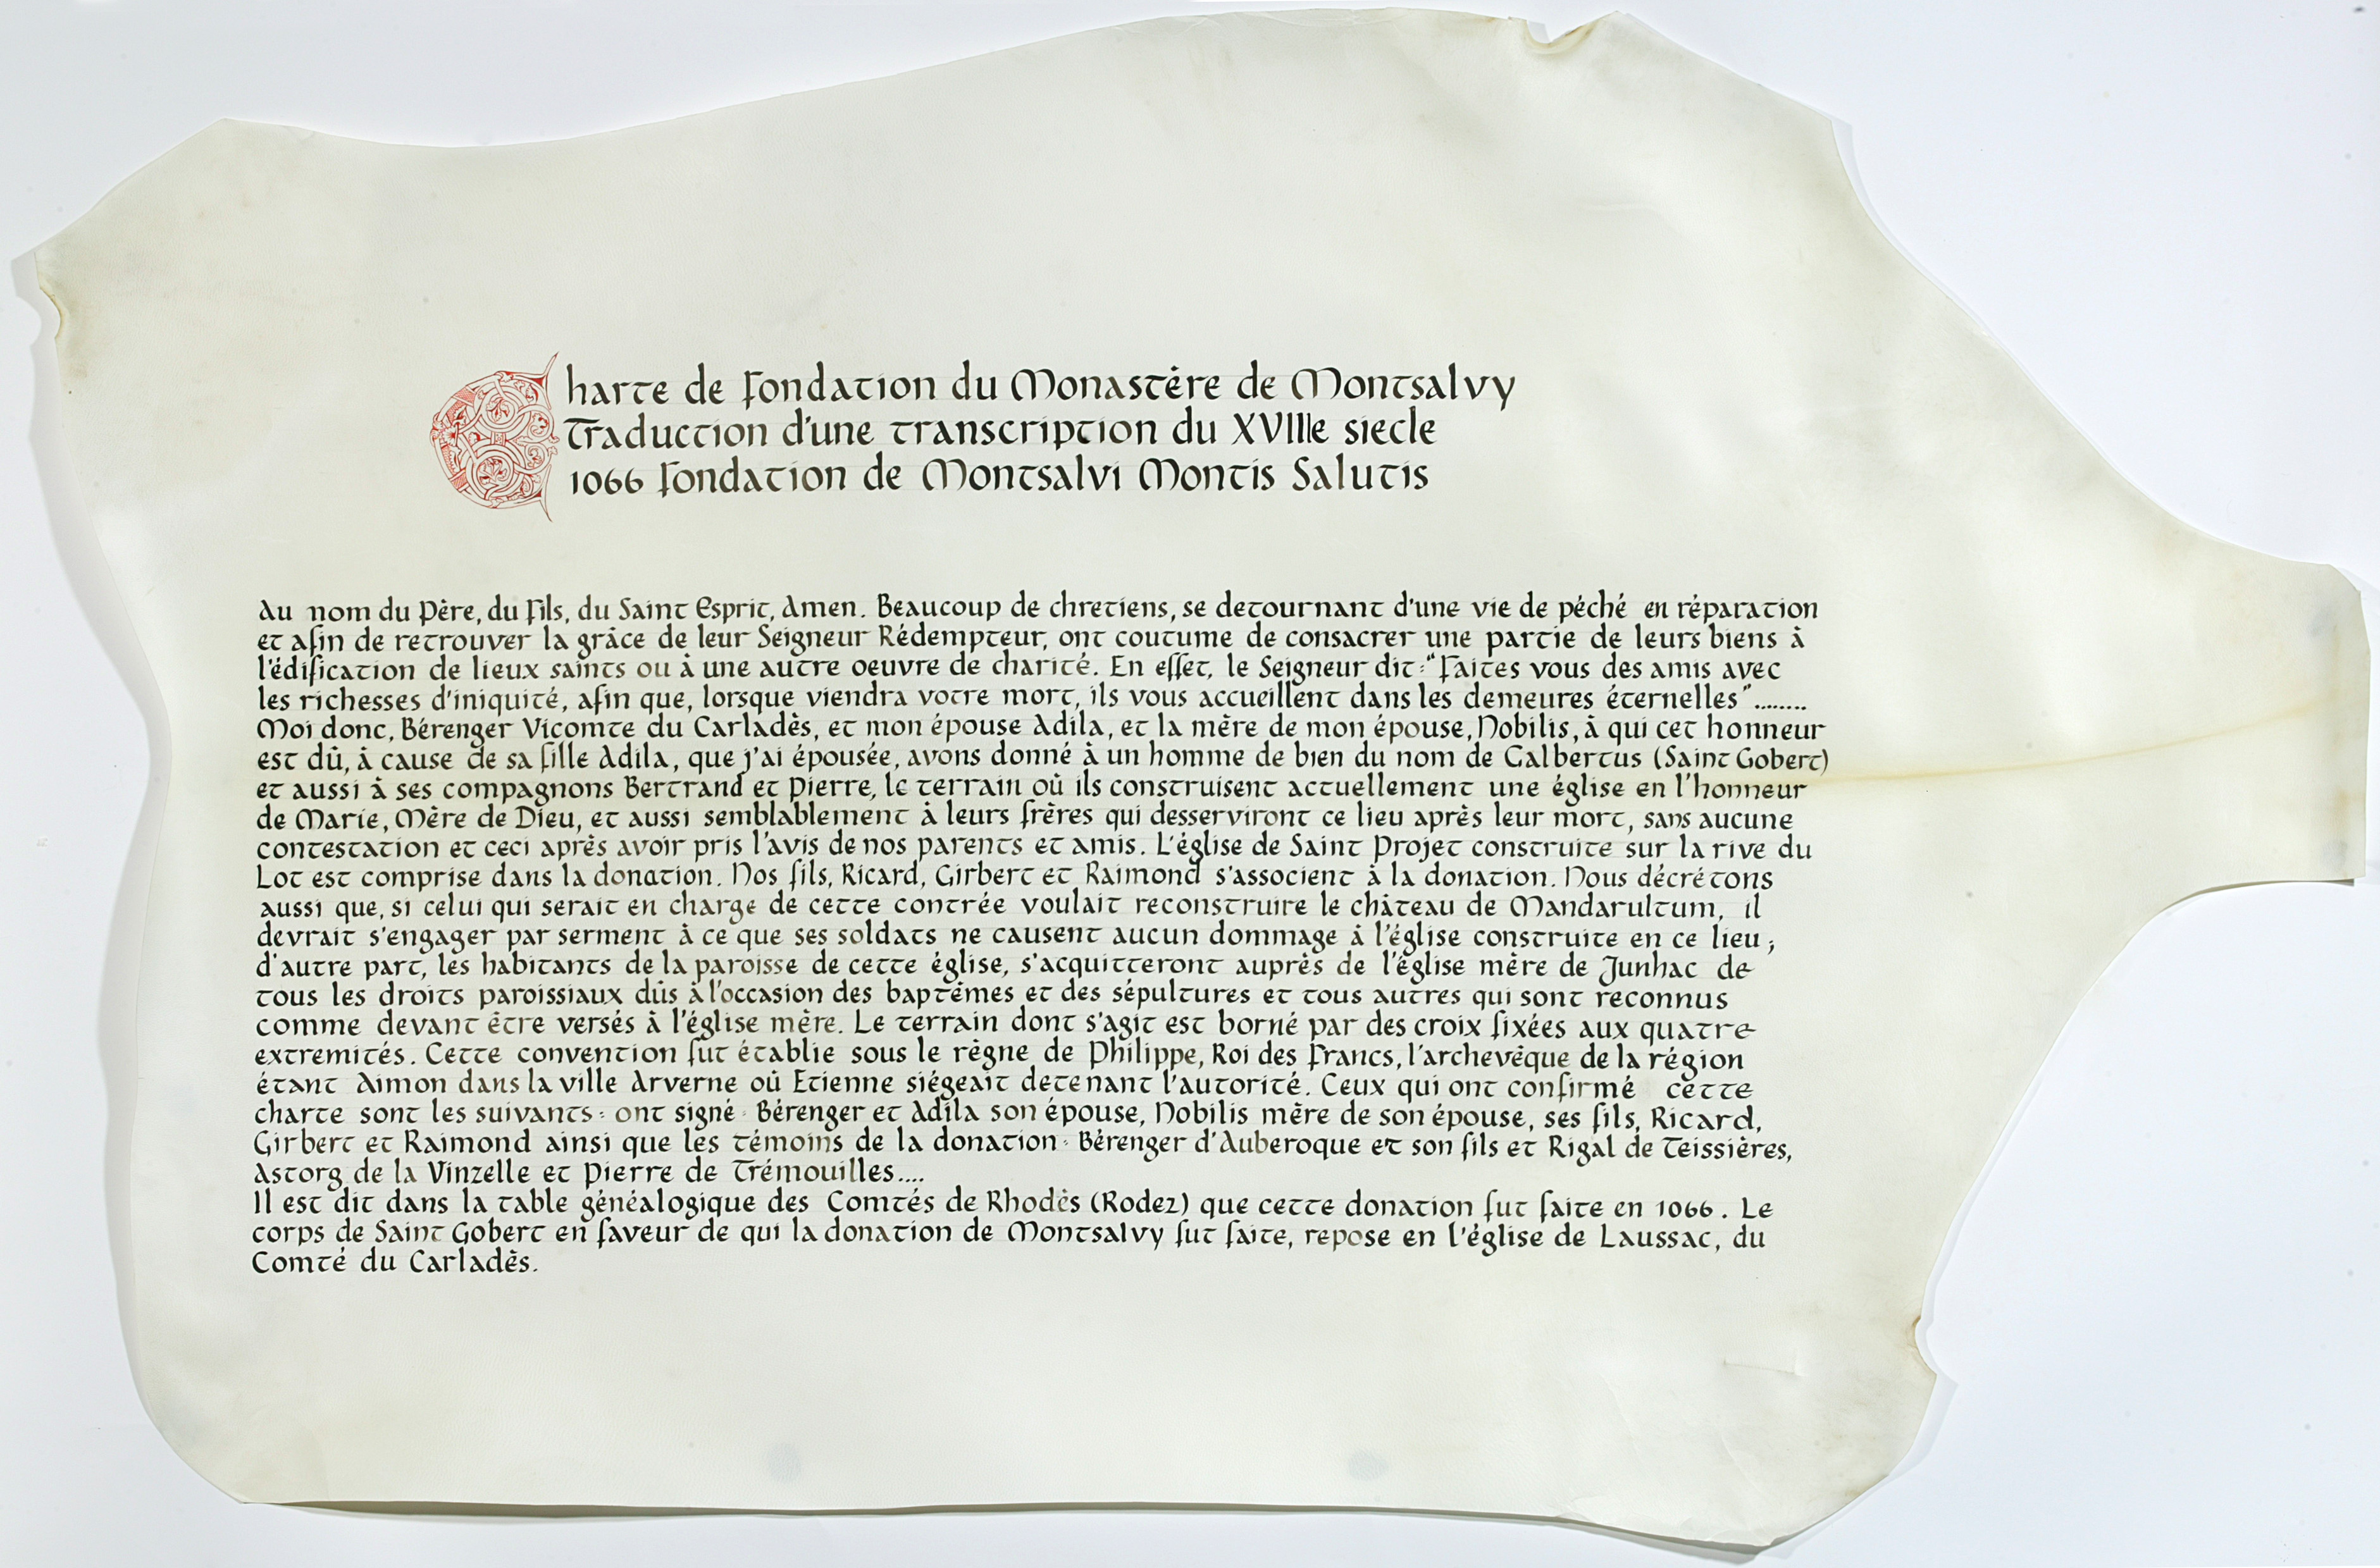 Charte de Fondation du Monastère de Montsalvy
Traduction d'une transcription du XVIIIe siecle
1066 Fondation de Montsalvi Montis Salutis
Au nom du Père, du Fils, du Saint Esprit, Amen. Beaucoup de chretiens, se detournant d'une vie de péché en réparation
et afin de retrouver la grâce de leur Seigneur Rédempteur, ont coutume de consacrer une partie de leurs biens à
l'édification de lieux saints ou à une autre oeuvre de charité. En effet, le Seigneur dit : "Faites vous des amis avec
les richesses d'iniquité, afin que, lorsque viendra votre mort, ils vous accueillent dans les demeures éternelles"........
Moi donc, Bérenger Vicomte du Carladès, et mon épouse Adila, et la mère de mon épouse, Nobilis, à qui cet honneur
est dû, à cause de sa fille Adila, que j'ai épousée, avons donné à un homme de bien du nom de Galbertus (Saint Gobert)
et aussi à ses compagnons Bertrand et Pierre, le terrain où ils construisent actuellement une église en l'honneur
de Marie, Mère de Dieu, et aussi semblablement à leurs frères qui desserviront ce lieu après leur mort, sans aucune
contestation et ceci après avoir pris l'avis de nos parents et amis. L'église de Saint Projet construite sur la rive du
Lot est comprise dans la donation. Nos fils, Ricard, Girbert et Raimond s'associent à la donation. Nous décrétons
aussi que, si celui qui serait en charge de cette contrée voulait reconstruire le château de Mandarultum, il
devrait s'engager par serment à ce que ses soldats ne causent aucun dommage à l'église construite en ce lieu ;
d'autre part, les habitants de la paroisse de cette église, s'acquitteront auprès de l'église mère de Junhac de
tous les droits paroissiaux dûs à l'occasion des baptêmes et des sépultures et tous autres qui sont reconnus
comme devant être versés à l'église mère. Le terrain dont s'agit est borné par des croix fixées aux quatre
extremités. Cette convention fut établie sous le règne de Philippe, Roi des Francs, l'archevêque de la région
étant Aimon dans la ville Arverne où Etienne siégeait detenant l'autorité. Ceux qui ont confirmé cette
charte sont les suivants : ont signé : Bérenger et Adila son épouse, Nobilis mère de son épouse, ses fils, Ricard,
Girbert et Raimond ainsi que les témoins de la donation : Bérenger d'Auberoque et son fils et Rigal de Teissières,
Astorg de la Vinzelle et Pierre de Trémouilles....
Il est dit dans la table généalogique des Comtés de Rhodès (Rodez) que cette donation fut faite en 1066. Le
corps de Saint Gobert en faveur de qui la donation de Montsalvy fut faite, repose en l'église de Laussac, du
Comté du Carladès.